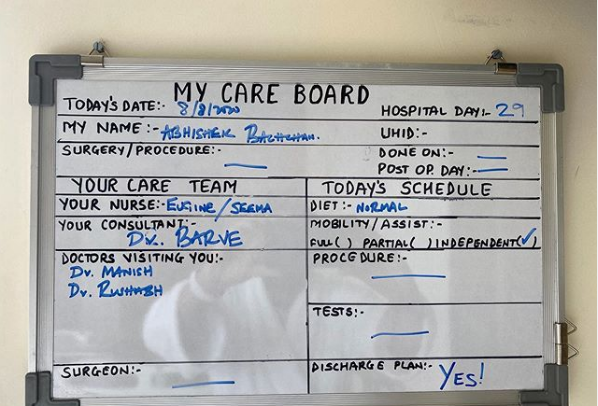 MY CARE BOARD
TODAY'S DATE:- 8/8/2020 HOSPITAL DAY:- 29
MY NAME:- ABHISHEK BACHCHAN. UHID:-
SURGERY/PROCEDURE:- — DONE ON:- —
POST OP. DAY:- —
YOUR CARE TEAM TODAY'S SCHEDULE
YOUR NURSE:- EUGINE/SEEMA DIET:- NORMAL
YOUR CONSULTANT:- MOBILITY/ASSIST:-
Dr. BARVE FULL( ) PARTIAL( ) INDEPENDENT(✓)
DOCTORS VISITING YOU:- PROCEDURE:-
Dr. MANISH —
Dr.
TESTS:-
—
SURGEON:- — DISCHARGE PLAN:- YES!